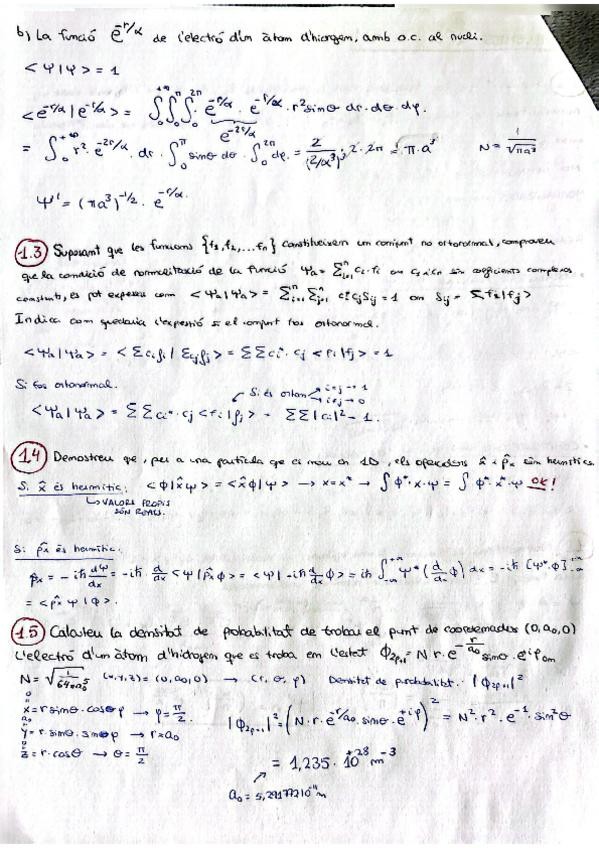 b) La funció e^{-r/α} de l'electró d'un àtom d'hidrogen, amb o.c. al nucli.
<Ψ|Ψ> = 1
<e^{-r/α}|e^{-r/α}> = ∫_0^{+∞}∫_0^π∫_0^{2π} e^{-r/α} · e^{-r/α} · r² sinθ dr · dθ dφ.
e^{-2r/α}
= ∫_0^{+∞} r² · e^{-2r/α} · dr · ∫_0^π sinθ dθ · ∫_0^{2π} dφ = 2/(2/α)³ · 2 · 2π = π · a³ N = 1/√(πa³)
Ψ' = (πa³)^{-1/2} · e^{-r/α}
1.3 Suposant que les funcions {f1, f2, ... fn} constitueixen un conjunt no ortonormal, comproveu
que la condició de normalització de la funció Ψa = Σ_{i=1}^n ci · fi on són coeficients complexos
constants, es pot expressar com <Ψa|Ψa> = Σ_{i=1}^n Σ_{j=1}^n ci* cj Sij = 1 on Sij = <fi|fj>
Indica com quedaria l'expressió si el conjunt fos ortonormal.
<Ψa|Ψa> = <Σci fi | Σcj fj> = ΣΣ ci* · cj <fi|fj> = 1
Si fos ortonormal.
Si és orton i=j → 1
i≠j → 0
<Ψa|Ψa> = ΣΣ ci* · cj <fi|fj> = ΣΣ |ci|² = 1.
1.4 Demostreu que, per a una partícula que es mou en 1D, els operadors x̂ i p̂x són hermítics.
Si x̂ és hermític: <Φ|x̂Ψ> = <x̂Φ|Ψ> → x = x* → ∫Φ* · x · Ψ = ∫Φ* · x* · Ψ OK!
↳ VALORS PROPIS
SÓN REALS.
Si p̂x és hermític:
p̂x = -iħ dΨ/dx = -iħ d/dx <Ψ|p̂xΦ> = <Ψ|-iħ d/dx Φ> = iħ ∫_{-∞}^{+∞} Ψ* (d/dx Φ) dx = -iħ [Ψ* · Φ]_{-∞}^{+∞}
= <p̂x Ψ|Φ>.
1.5 Calculeu la densitat de probabilitat de trobar el punt de coordenades (0, a0, 0)
l'electró d'un àtom d'hidrogen que es troba en l'estat Φ_{2p+1} = N r · e^{-r/a0} sinθ · e^{iφ}
N = √(1/64πa0⁵) (x, y, z) = (0, a0, 0) → (r, θ, φ) Densitat de probabilitat: |Φ_{2p+1}|²
0
x = r sinθ · cosφ → φ = π/2
a0
y = r · sinθ · sinφ → r = a0
0
z = r · cosθ → θ = π/2
|Φ_{2p+1}|² = (N · r · e^{-r/a0} · sinθ · e^{+iφ})² = N² · r² · e^{-1} · sin²θ
= 1,235 · 10^{+28} m^{-3}
a0 = 5,29177210^{-11} m